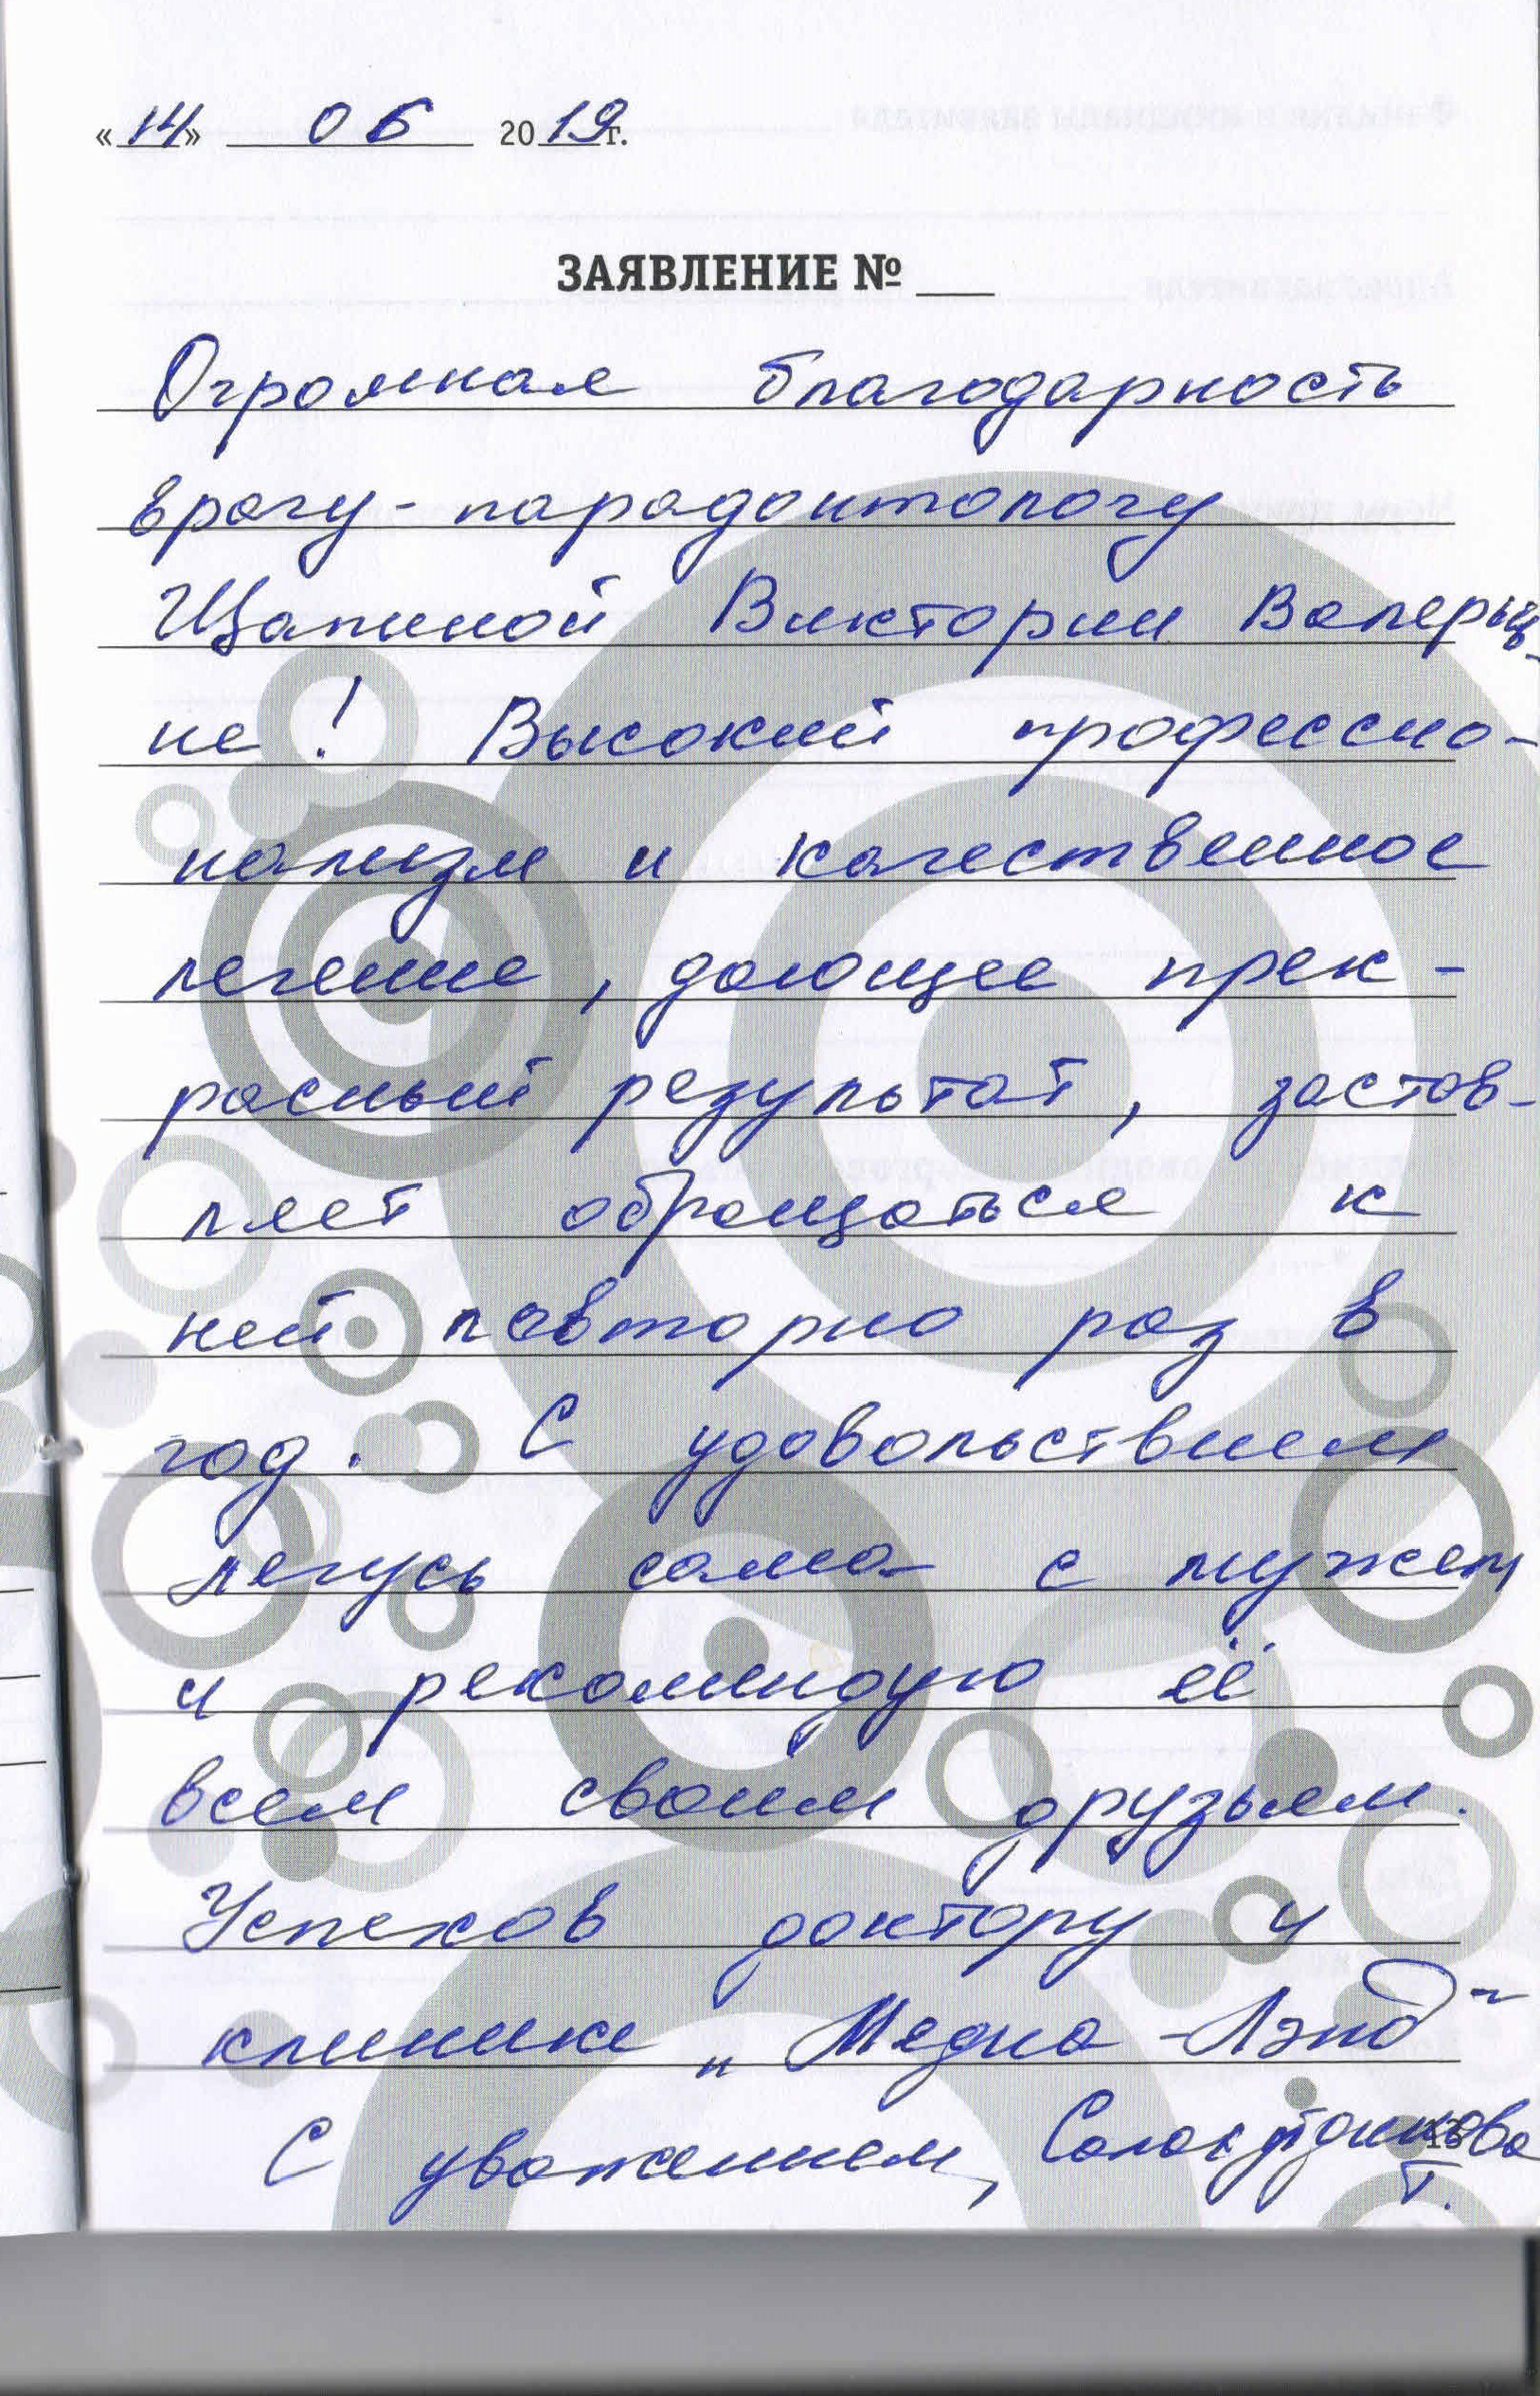 «14» 06 2019 г.
ЗАЯВЛЕНИЕ № ___
Огромная благодарность
врачу-парадонтологу
Щапиной Виктории Валерьев-
не! Высокий профессио-
нализм и качественное
лечение, дающее прек-
расный результат, застав-
ляет обращаться к
ней повторно раз в
год. С удовольствием
лечусь сама с мужем
и рекомендую её
всем своим друзьям.
Успехов доктору и
клинике „Медиа-Лэнд"
С уважением,
Т.